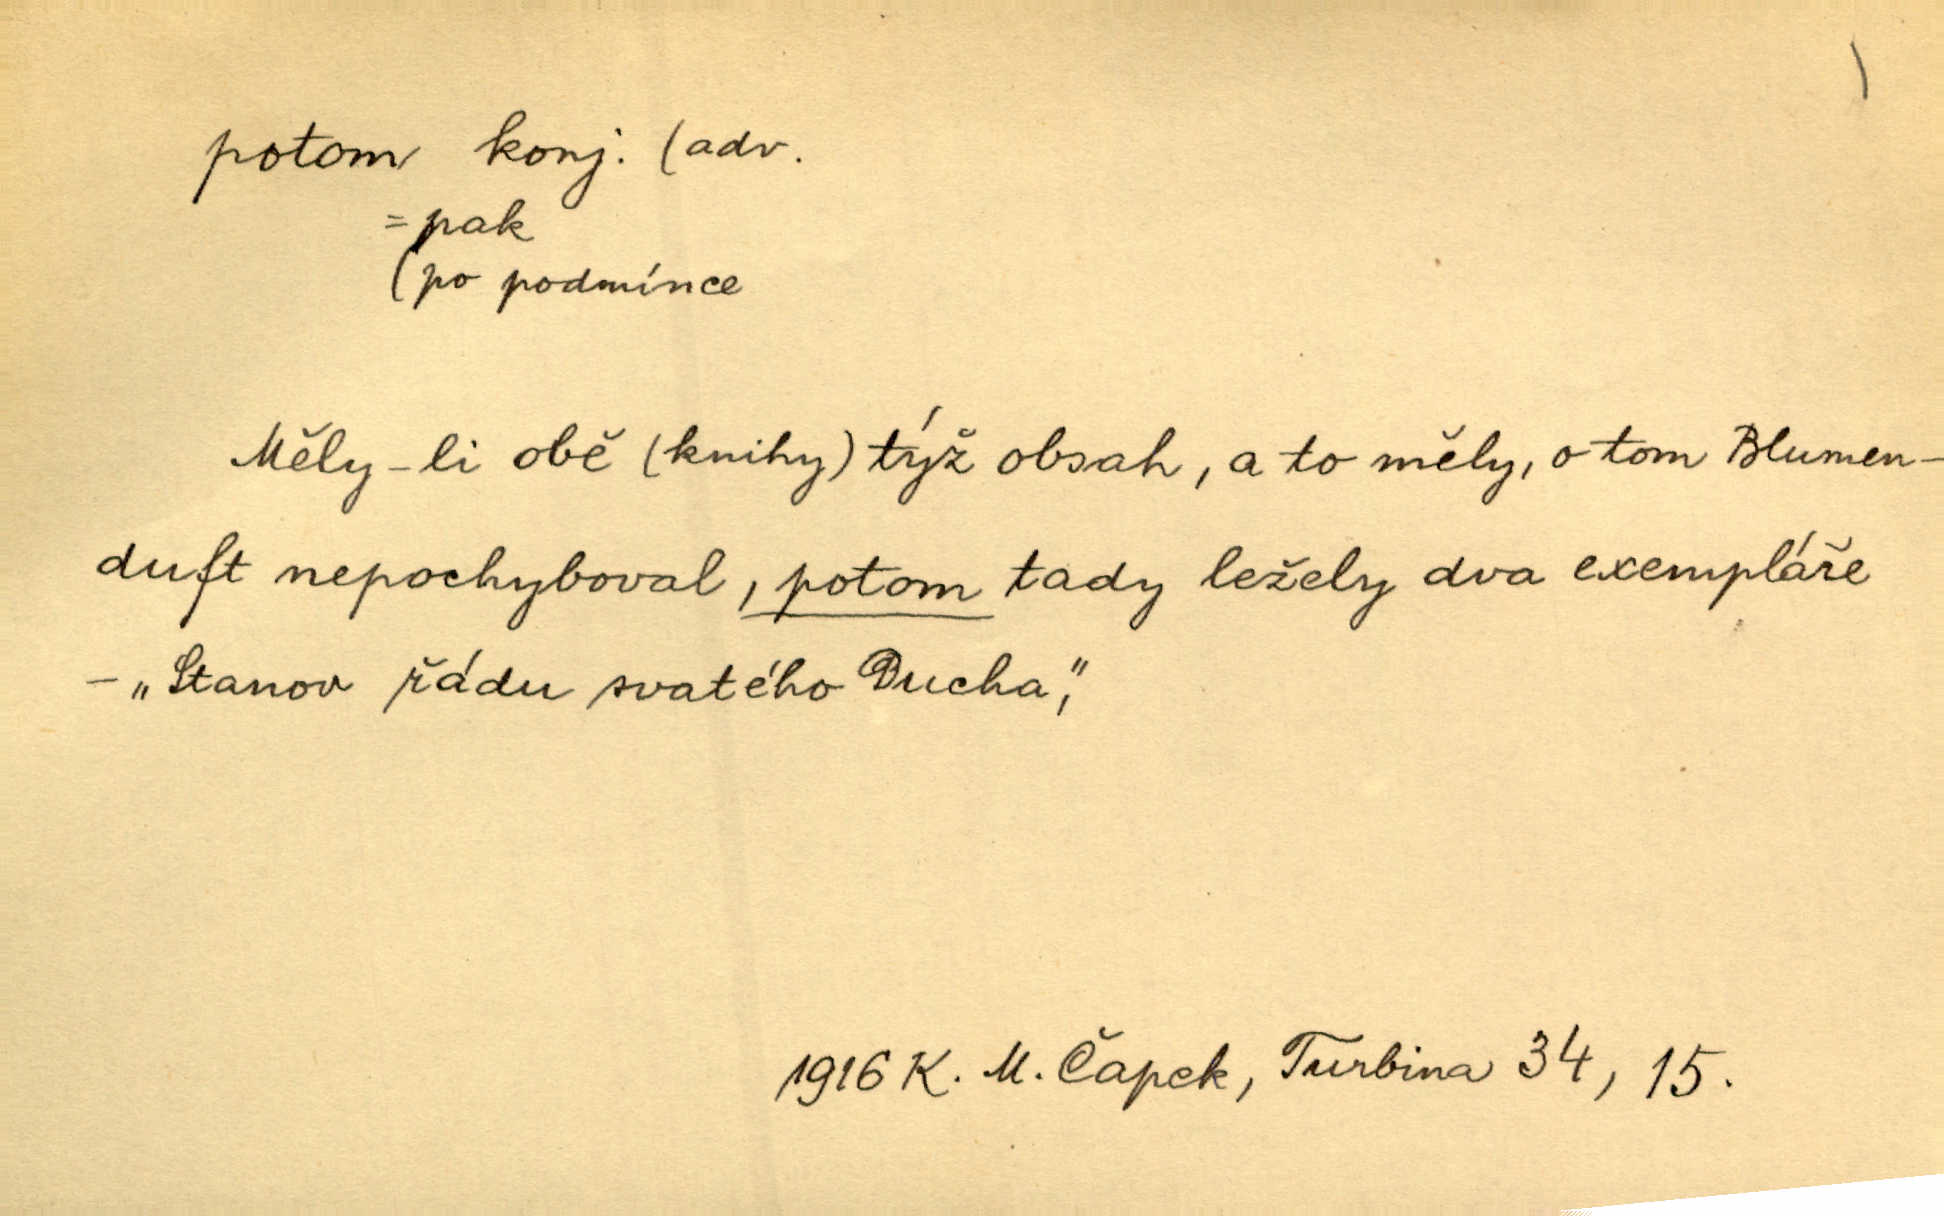 potom konj. (adv.
= pak
(po podmínce
Měly-li obě (knihy) týž obsah, a to měly, o tom Blumen-
duft nepochyboval, potom tady ležely dva exempláře
- „Stanov řádu svatého Ducha“,
1916 K. M. Čapek, Turbina 34, 15.